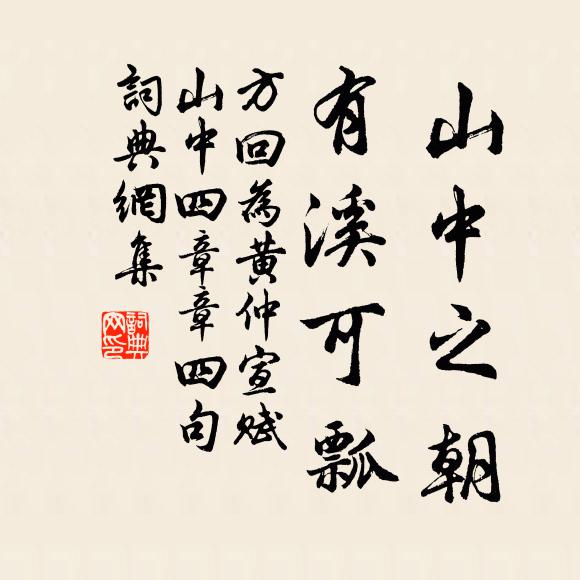 山中之朝
有溪可瓢
方回為黃仲宣賦
山中四章章四句
詞典網集
詞典
网印